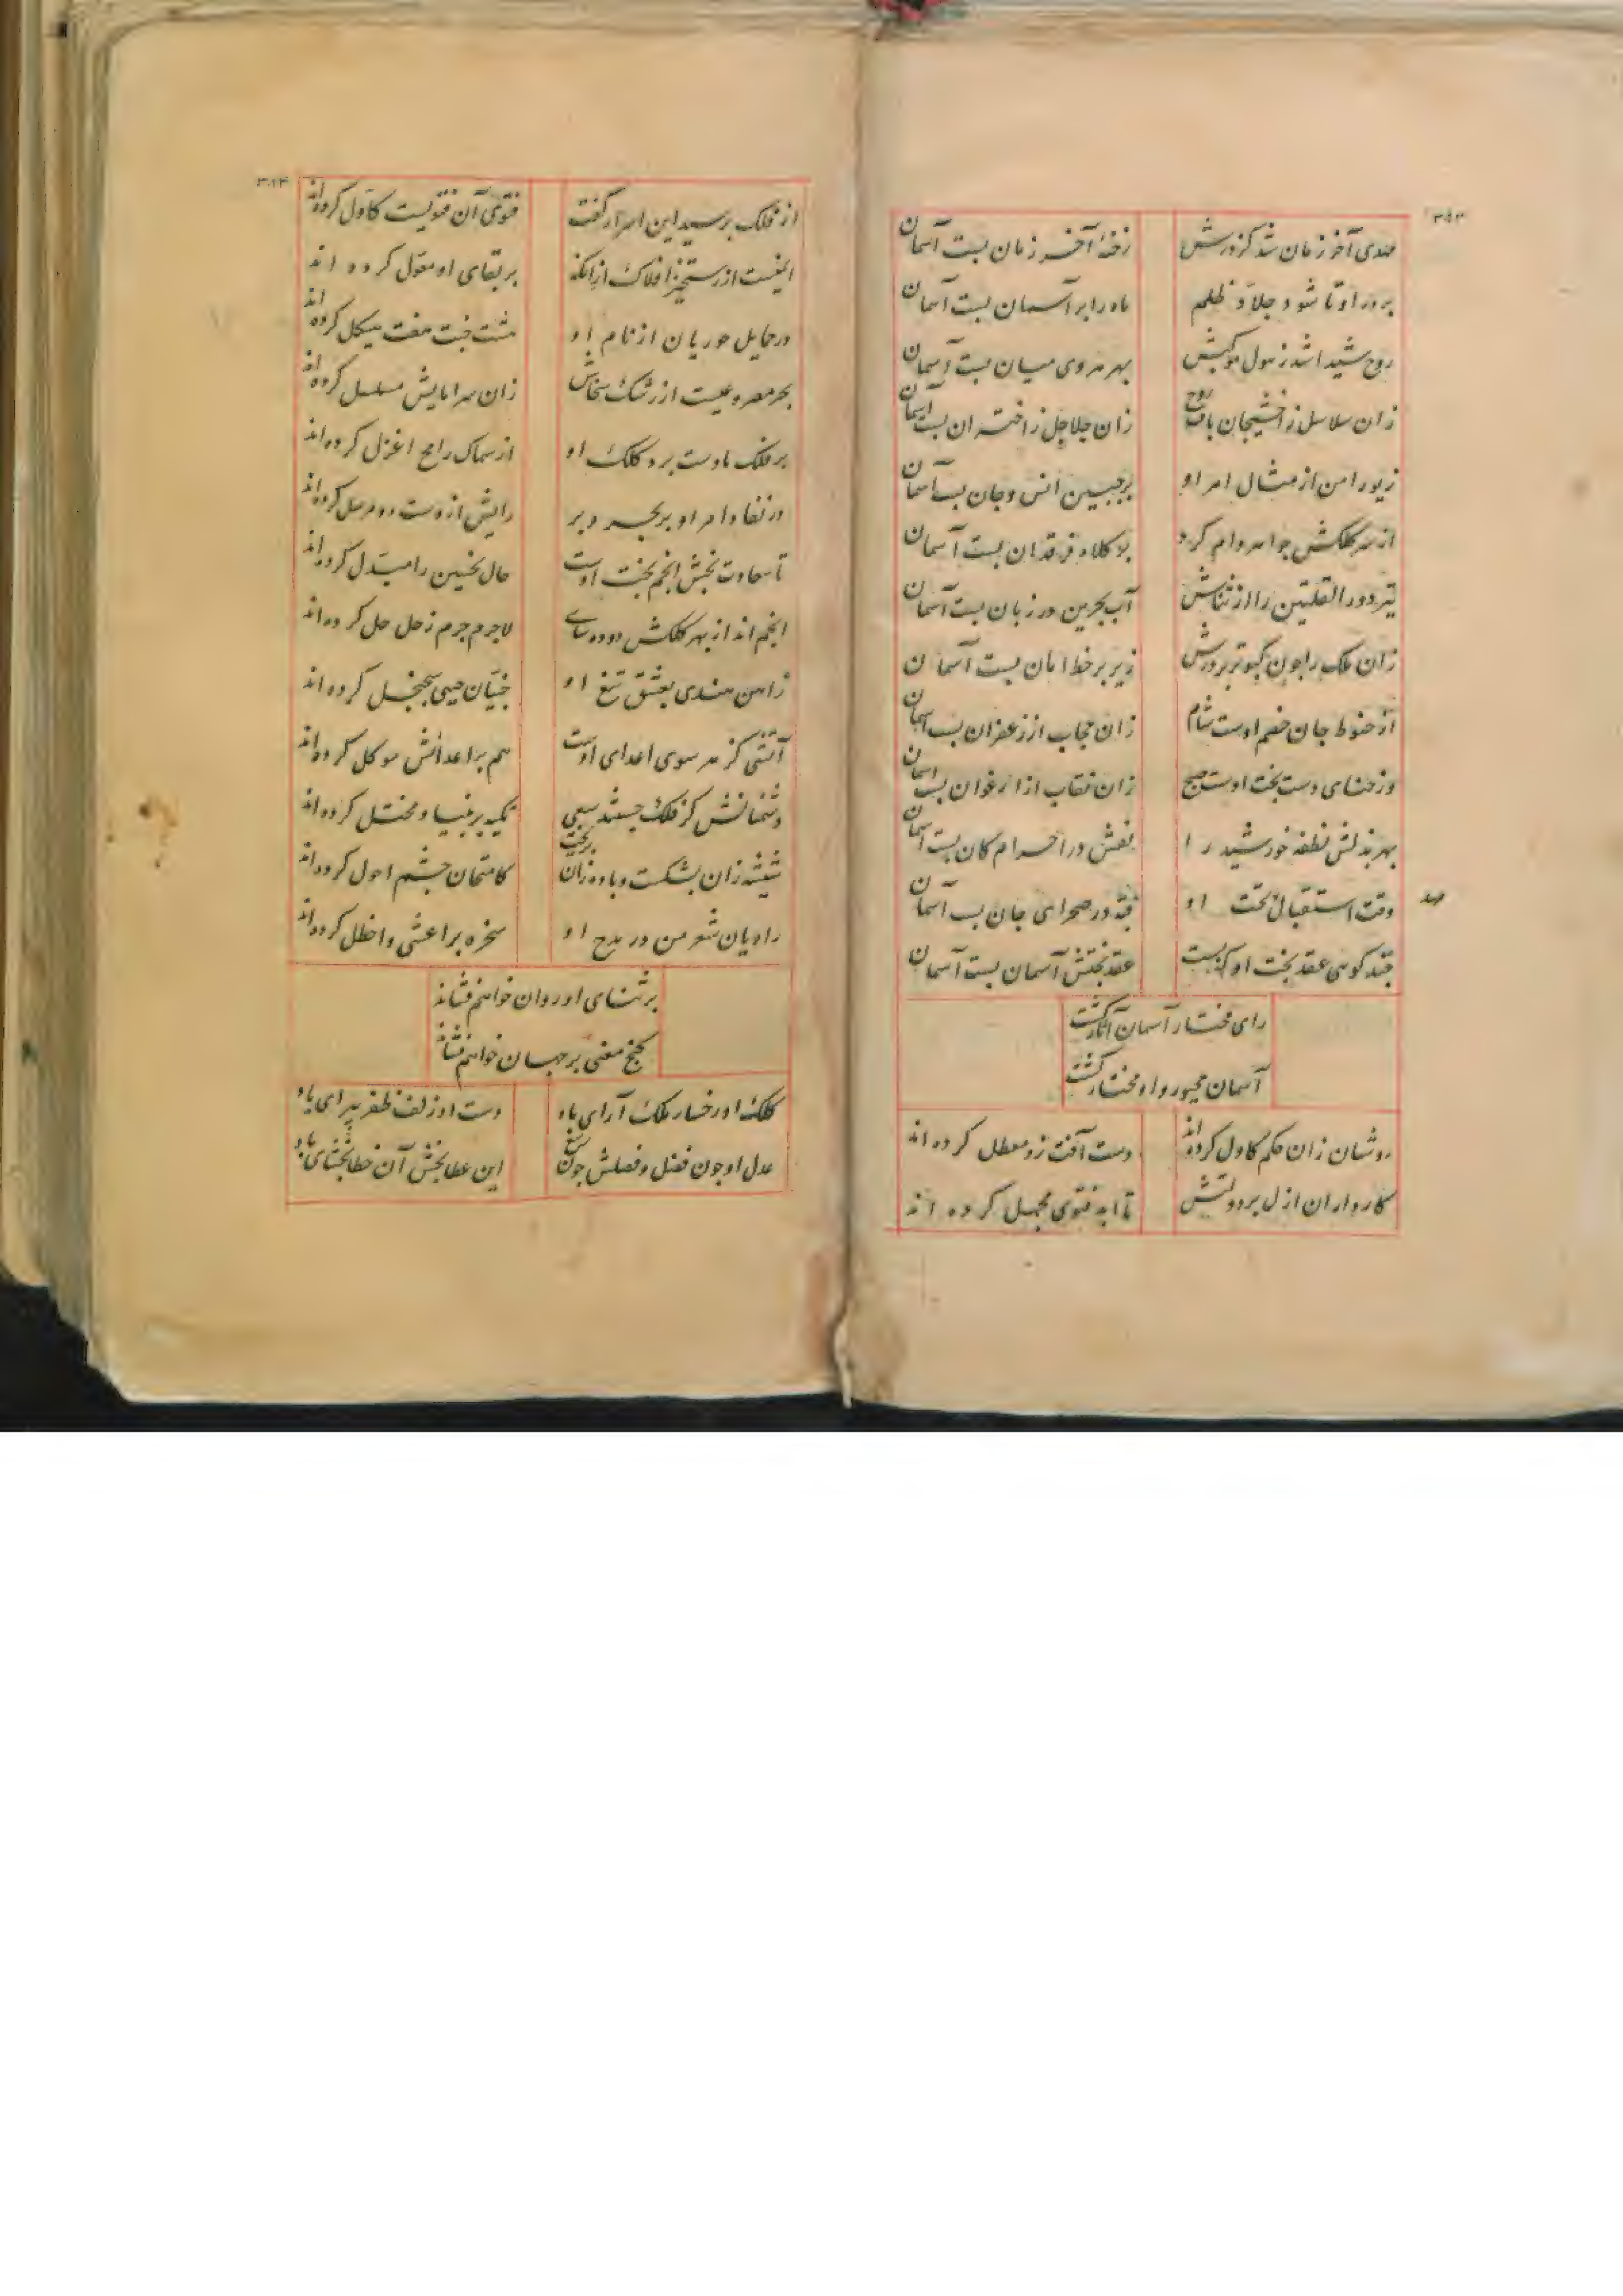 مهدی آخر زمان شد کز درش رخنهٔ آخر زمان بست آسمان
بر در او تا شود جلاد ظلم ماه را بر آسمان بست آسمان
روح شیدا شد ز هول موکبش بهر هر وی میان بست آسمان
زان سلاسل زان جلاجل ز اختران بست آسمان
زیور امن از مثال امر او بر جبین انس و جان بست آسمان
از سر کلکش جواهر وام کرد بر کلاه فرقدان بست آسمان
تیر دور القلتین را از ثناش آب بحرین در زبان بست آسمان
زان ملک را چون کبوتر بر درش زیر بر خط امان بست آسمان
از حنوط جان خصم اوست شام زان حجاب از زعفران بست آسمان
وز حنای دست بخت اوست صبح زان نقاب از ارغوان بست آسمان
بهر بذلش نطفه خورشید را نقش در احرام کان بست آسمان
وقت استقبال بخت او قبه در صحرای جان بست آسمان
چند کوئی عقد بخت او که بست عقد بختش آسمان بست آسمان
رای مختار آسمان آثار گشت
آسمان مجبور و او مختار گشت
روشنان زان حکم کاول کرده اند دست آفت زو معطل کرده اند
کارداران ازل بر دولتش تا ابد فتوی مجمل کرده اند
از فلک پرسید این اسرار گفت فتوی آن فتویست کاول کرده اند
ایمنست از رستخیز افلاک از آنکه بر بقای او معول کرده اند
در حمایل حوریان از نام او هشت جنت هفت هیکل کرده اند
بحر مصروعیست از رشک سخاش زان سراپایش مسلسل کرده اند
بر فلک با دست برد کلک او از سماک رامح اعزل کرده اند
در نفاد امر او بر بحر و بر رایش از دست
تا سعادت بخش انجم بخت اوست حال نحسین را مبدل کرده اند
انجم اند از بهر کلکش دوده سای لاجرم جرم زحل حل کرده اند
ز آهن هندی بعشق تیغ او
آتشی کز هر سوی اعدای اوست هم بر اعدائش موکل کرده اند
دشمنانش کز فلک جستند سعی تکیه بر بنیاد مختل کرده اند
شیشه زان بشکست و باده زان بریخت کامتحان چشم احول کرده اند
راویان شعر من در مدح او سخره بر اعشی و اخطل کرده اند
بر ثنای او روان خواهم فشاند
گنج معنی بر جهان خواهم فشاند
کلک او رخسار ملک آرای باد دست او زلف ظفر پیرای باد
عدل او چون فضل و فضلش چون این عطا بخش آن خطا بخشای باد